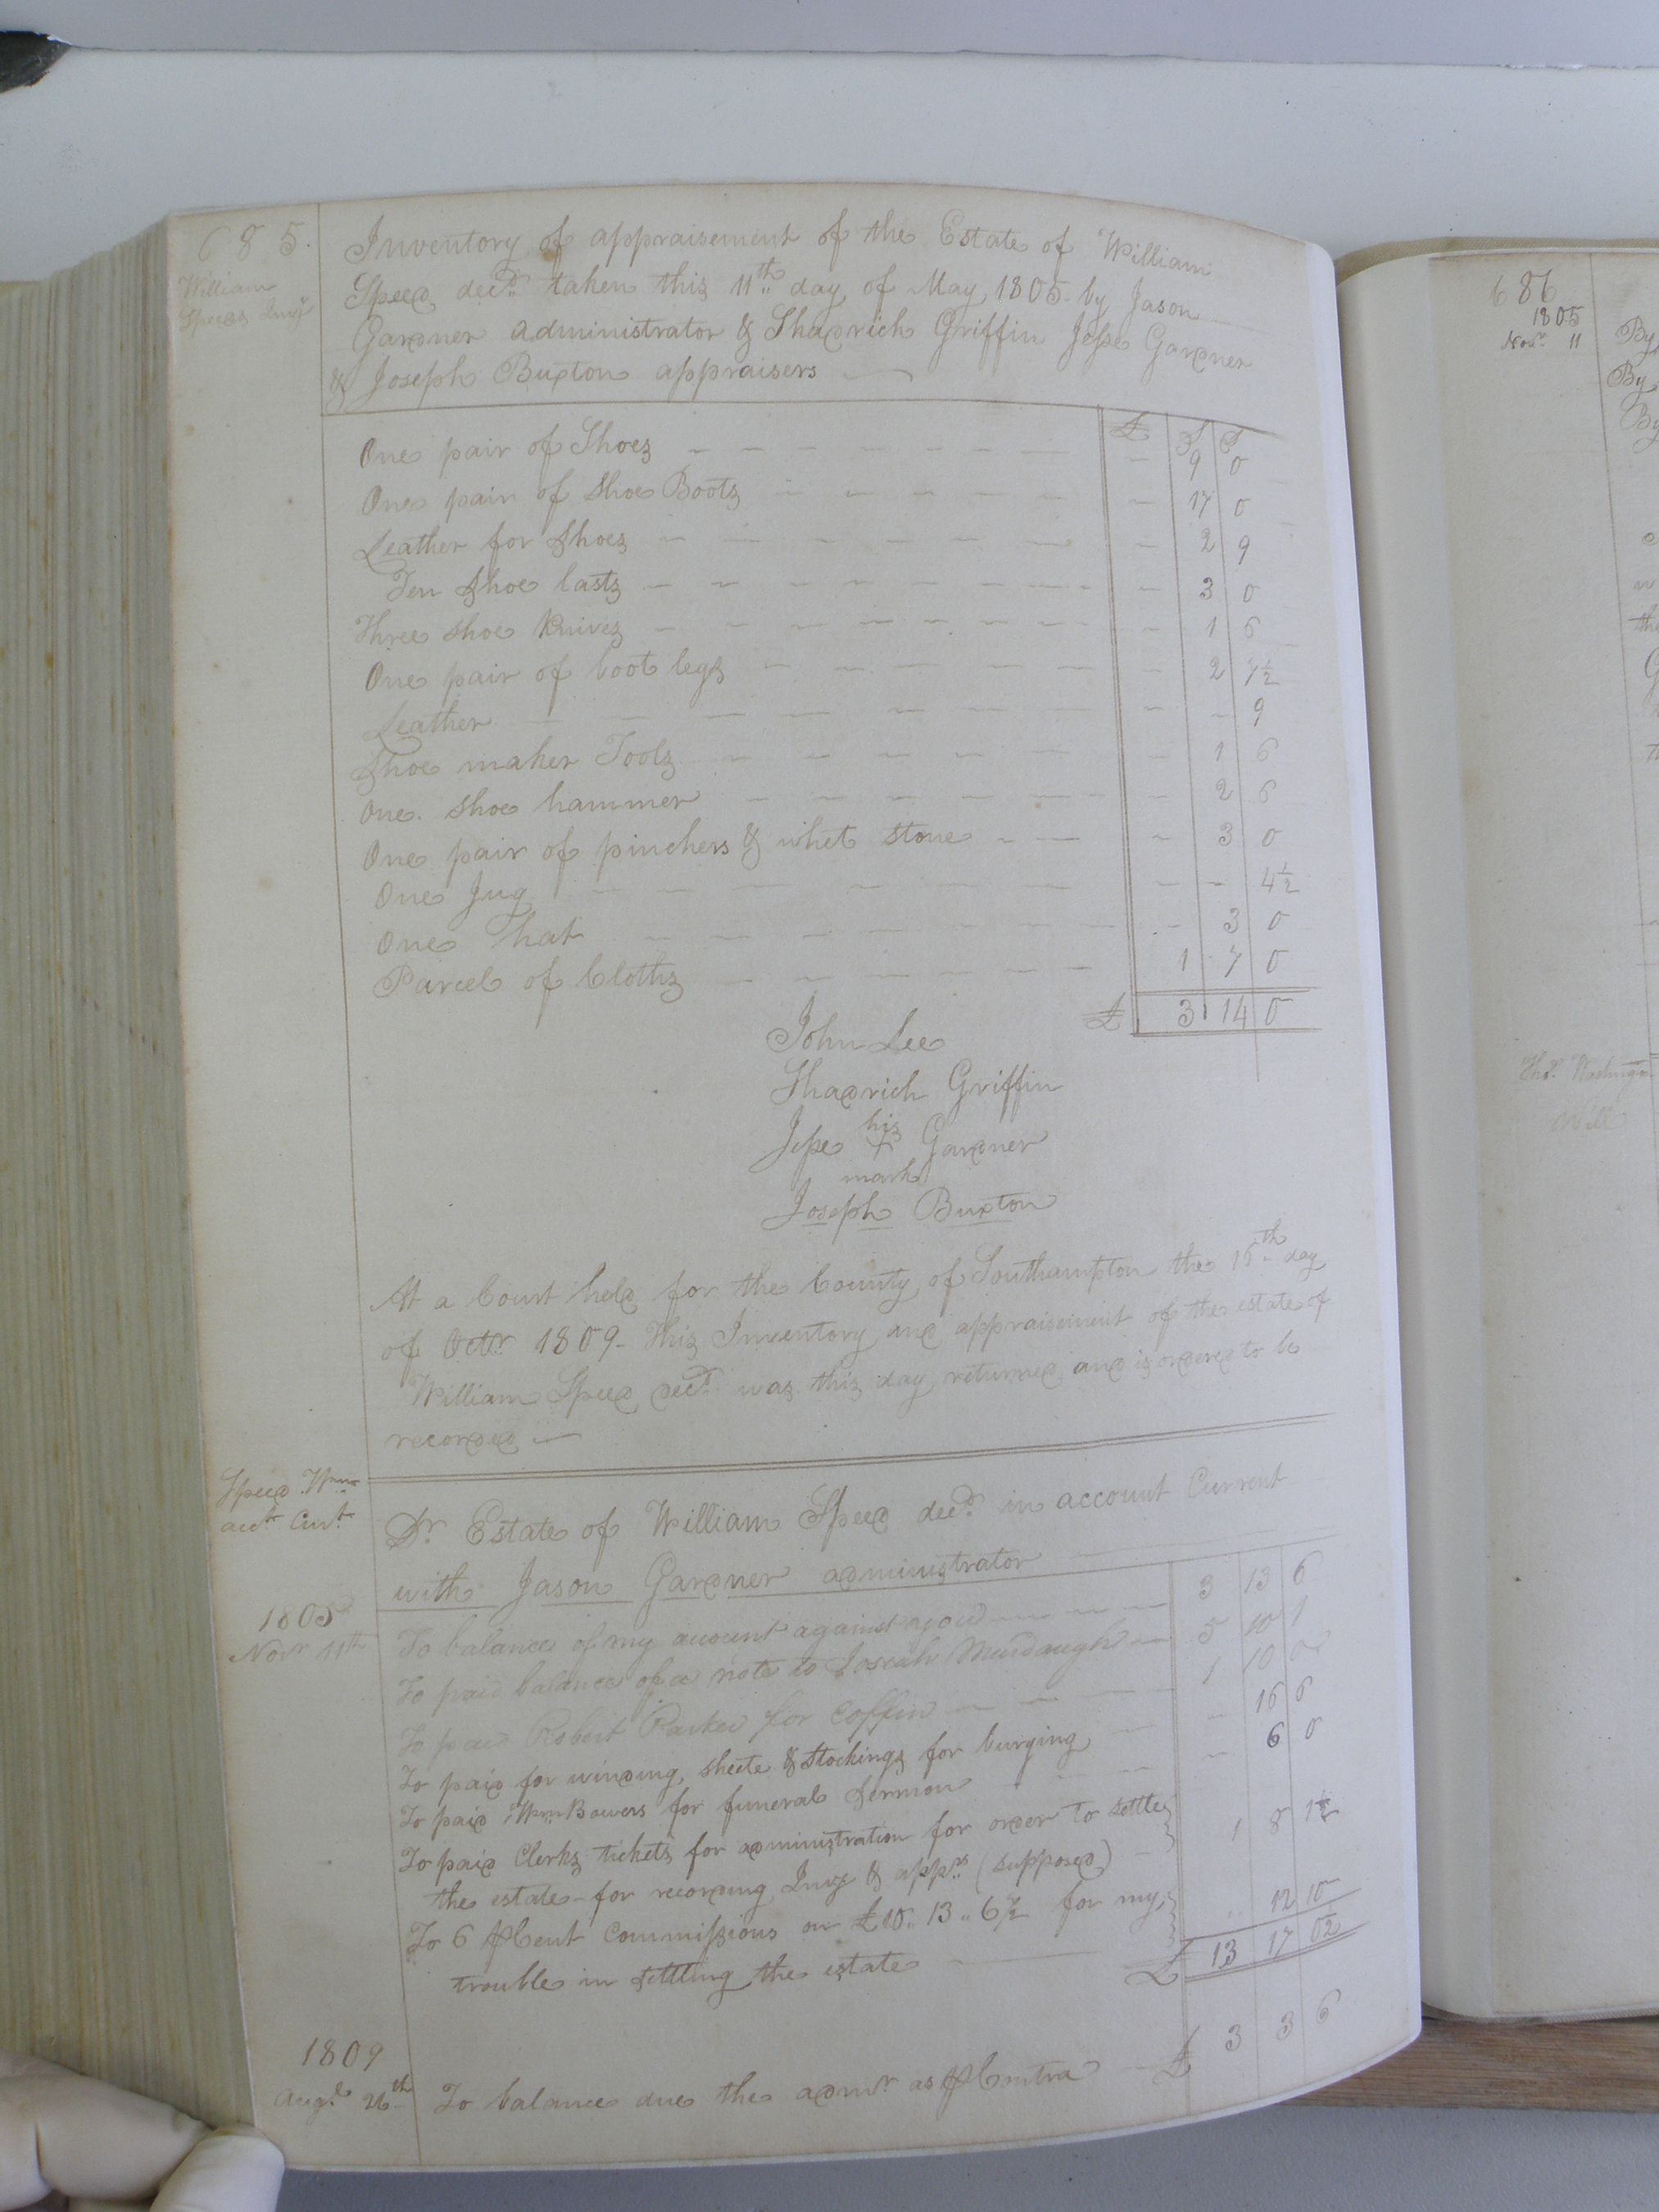 685.
William
Speeds Invy
Inventory of appraisement of the Estate of William
Speed decd taken this 11th day of May 1805 by Jason
Gardner administrator & Shadrich Griffin Jesse Gardner
& Joseph Buxton appraisers
£ S D
One pair of Shoes - 9 0
One pair of Shoe Boots - 17 0
Leather for Shoes - 2 9
Ten Shoe lasts - 3 0
Three Shoe Knives - 1 6
One pair of boot legs - 2 7½
Leather - - 9
Shoe maker Tools - 1 6
One shoe hammer - 2 6
One pair of pinchers & whet stone - 3 0
One Jug - - 4½
One hat - 3 0
Parcel of Cloths 1 7 0
£ 3 14 0
John Lee
Shadrich Griffin
his
Jesse + Gardner
mark
Joseph Buxton
At a Court held for the County of Southampton the 16th day
of Octr 1809 - This Inventory and appraisement of the estate of
William Speed decd was this day returned and is ordered to be
recorded
Speed Wm
acct Curt
Dr Estate of William Speed decd in account Current
with Jason Gardner administrator
1805
Novr 11th To balance of my account against you 3 13 6
To paid balance of a note to Josiah Murdaugh 5 10 1
To paid Robert Parker for Coffin 1 10 0
To paid for winding sheete & Stockings for burying - 16 6
To paid Wm Bowers for funeral Sermon - 6 0
To paid Clerks tickets for administration for order to settle
the estate - for recording Invy & apprs (supposed) 1 8 1½
To 6 ⅌Cent Commissions on £10..13..6½ for my
trouble in settling the estate 12 10
£ 13 17 02
1809
Augt 26th To balance due the admr as ⅌ Contra £ 3 3 6
686
1805
Novr 11
By
By
By
Thos. Washington
Will